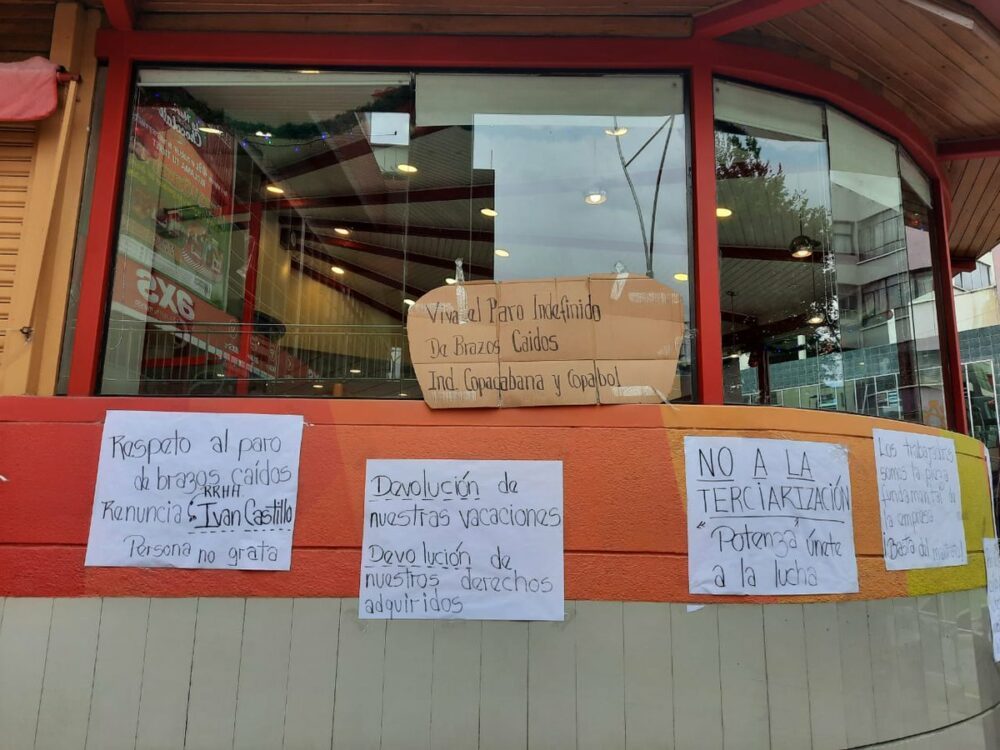 Viva el Paro Indefinido
De Brazos Caidos
Ind. Copacabana y Copabol
Respeto al paro
de brazos caídos
RRHH
Renuncia Ivan Castillo
Persona no grata
Devolución de
nuestras vacaciones
Devolución de
nuestros derechos
adquiridos
NO A LA
TERCIARIZACIÓN
"Potenza" únete
a la lucha
Los trabajadores
somos la pieza
fundamental de
la empresa
¡Basta del maltrato!
Chocolate